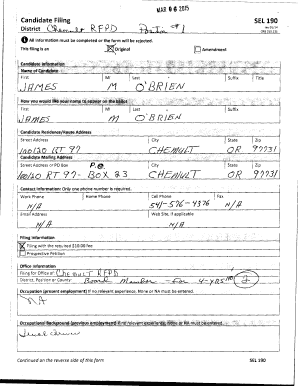 MAR 06 2015
Candidate Filing SEL 190
District Chemult RFPD Position #1
All information must be completed or the form will be rejected.
This filing is an Original Amendment
Candidate Information
Name of Candidate
First MI Last Suffix Title
JAMES M O'BRIEN
How you would like your name to appear on the ballot
First MI Last Suffix Title
JAMES M O'BRIEN
Candidate Residence/Route Address
Street Address City State Zip
100120 RT 97 CHEMULT OR 97731
Candidate Mailing Address
Street Address or PO Box P.O. City State Zip
100120 RT 97- BOX 23 CHEMULT OR 97731
Contact Information: Only one phone number is required.
Work Phone Home Phone Cell Phone Fax
N/A 541-576-4376 N/A
Email Address Web Site, if applicable
N/A N/A
Filing Information
Filing with the required $10.00 fee
Prospective Petition
Office Information
Filing for Office of: Chemult RFPD
District, Position or County: Board Member - For 4-YRS
Occupation (present employment) If no relevant experience, None or NA must be entered.
NA
Occupational Background (previous employment) If no relevant experience, None or NA must be entered.
Continued on the reverse side of this form SEL 190